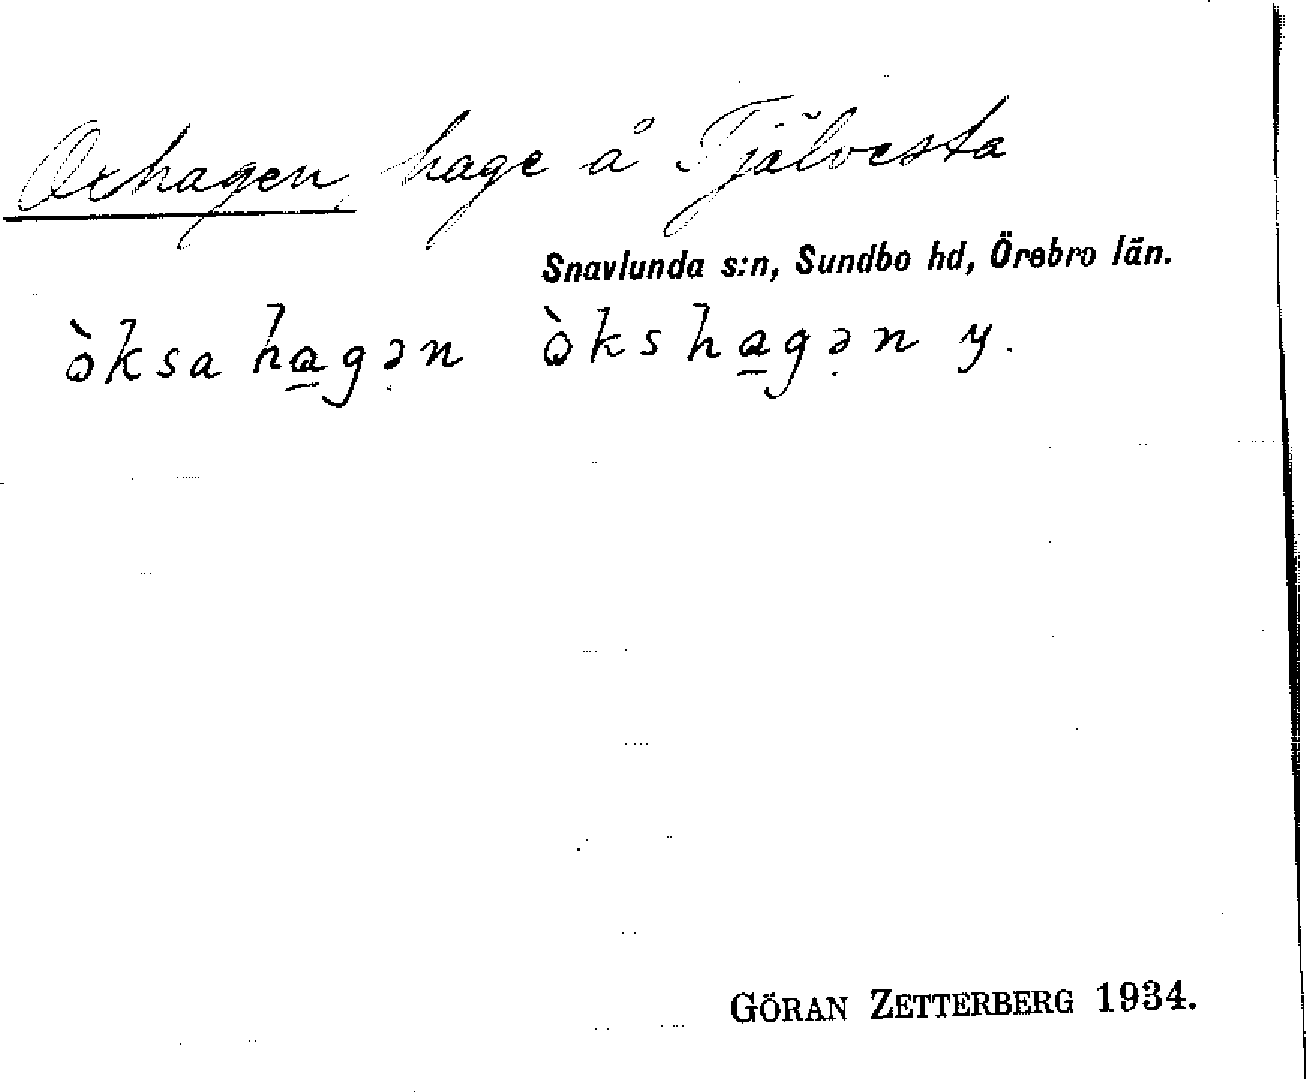 Oxhagen, hage å Tjälvesta
Snavlunda s:n, Sundbo hd, Örebro län.
òksaha̲gə̣n òksha̲gə̣n y.
GÖRAN ZETTERBERG 1934.